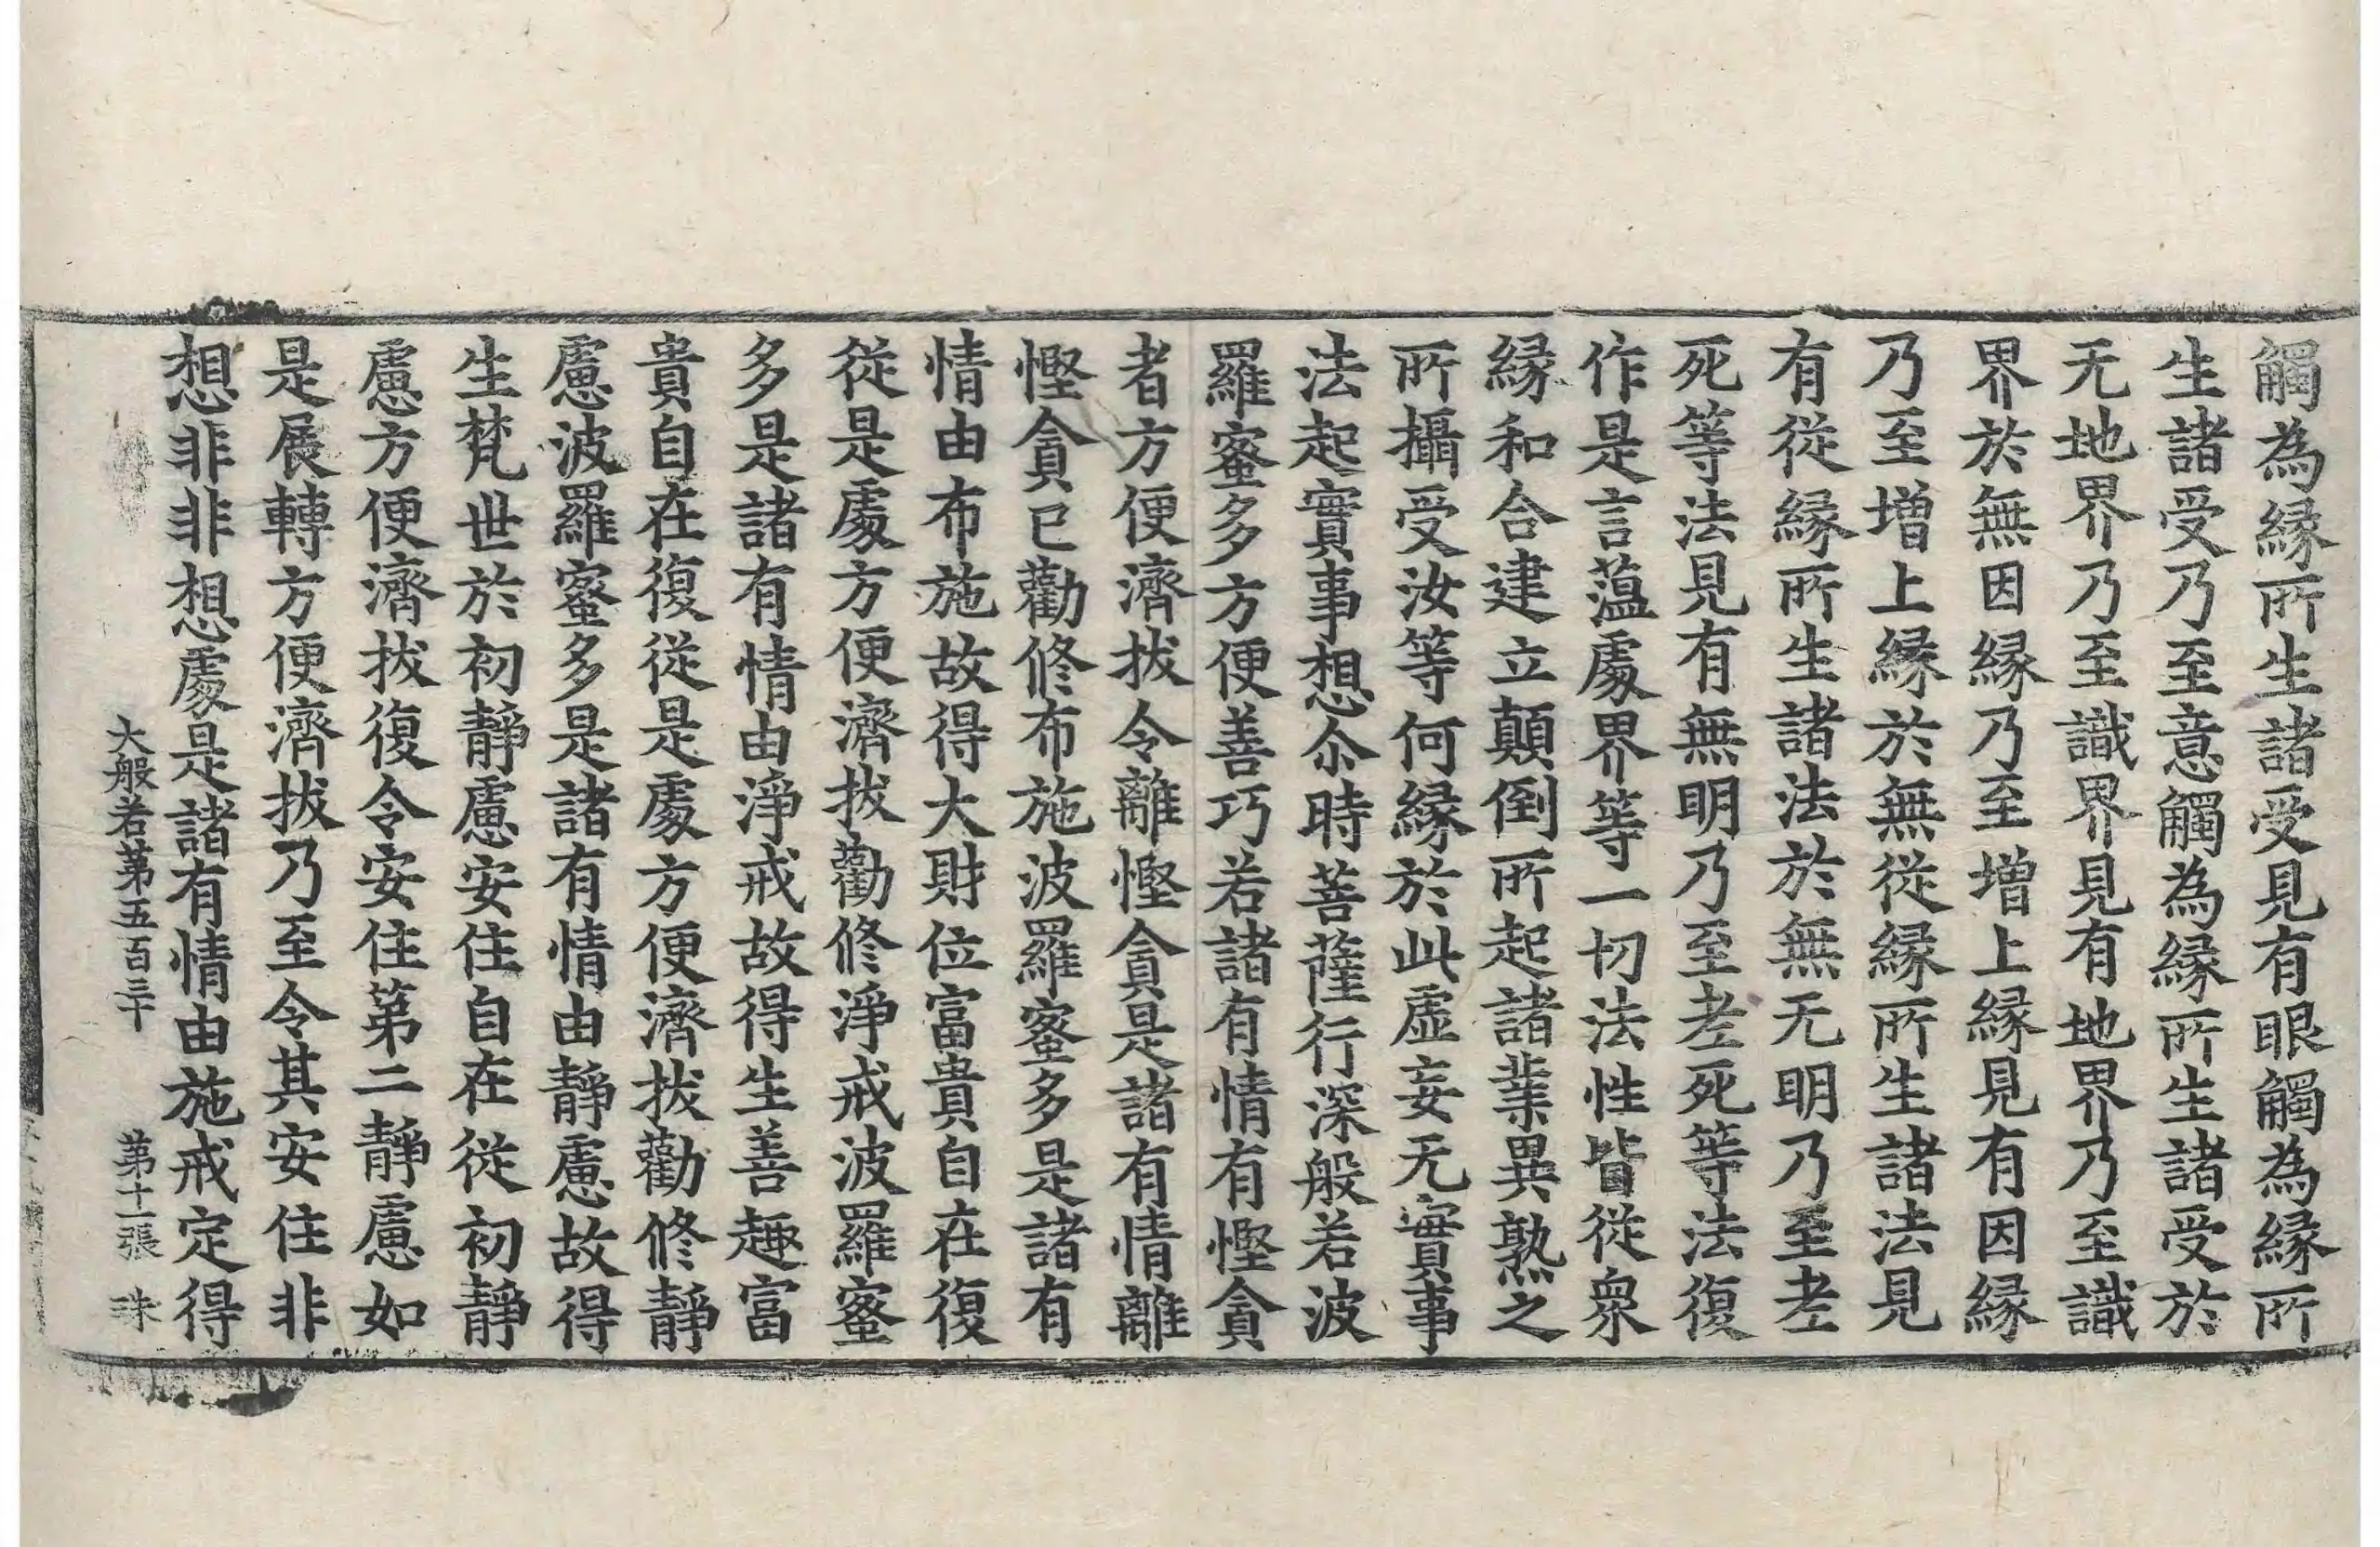 觸為縁所生諸受見有眼觸為縁所
生諸受乃至意觸為縁所生諸受於
无地界乃至識界見有地界乃至識
界於無因縁乃至增上縁見有因縁
乃至增上縁於無從縁所生諸法見
有從縁所生諸法於無无明乃至老
死等法見有無明乃至老死等法復
作是言薀處界等一切法性皆從衆
縁和合建立顛倒所起諸業異熟之
所攝受汝等何縁於此虛妄无實事
法起實事想尒時菩薩行深般若波
羅蜜多方便善巧若諸有情有慳貪
者方便濟拔令離慳貪是諸有情離
慳貪已勸修布施波羅蜜多是諸有
情由布施故得大財位富貴自在復
從是處方便濟拔勸修淨戒波羅蜜
多是諸有情由淨戒故得生善趣富
貴自在復從是處方便濟拔勸修靜
慮波羅蜜多是諸有情由靜慮故得
生梵世於初靜慮安住自在從初靜
慮方便濟拔復令安住第二靜慮如
是展轉方便濟拔乃至令其安住非
想非非想處是諸有情由施戒定得
大般若第五百三十 第十一張 珠